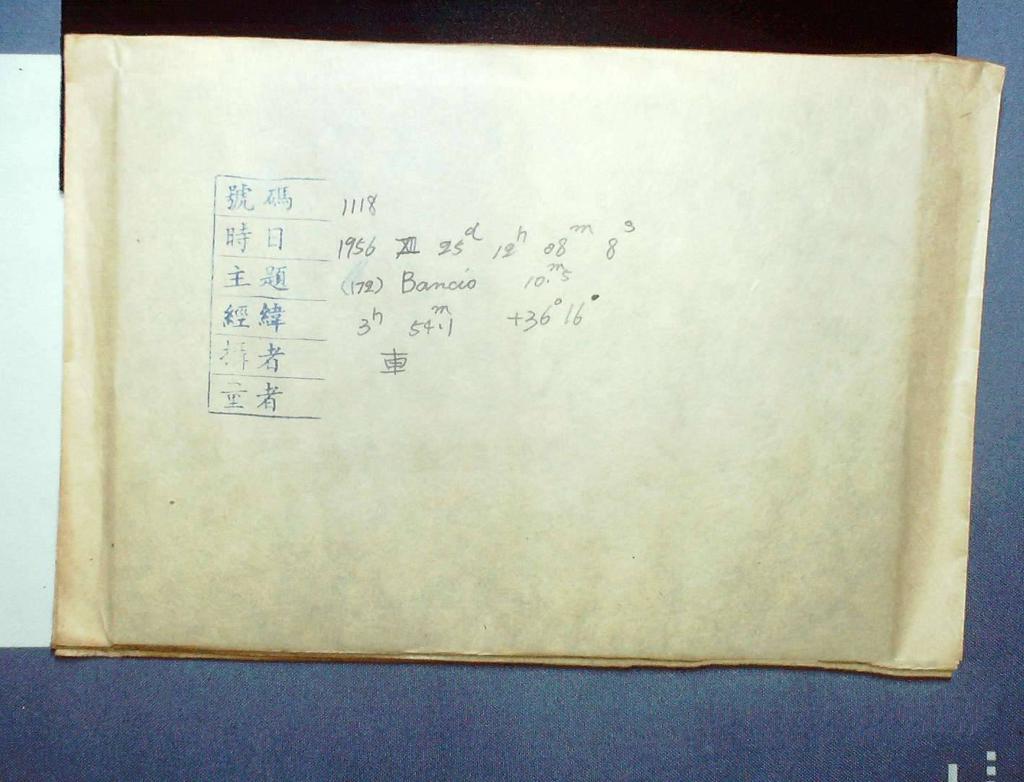 號碼 1118
時日 1956 XII 25ᵈ 12ʰ 08ᵐ 8ˢ
主題 (172) Bancis 10.ᵐ5
經緯 3ʰ 54.ᵐ1 +36°16'
攝者 車
量者